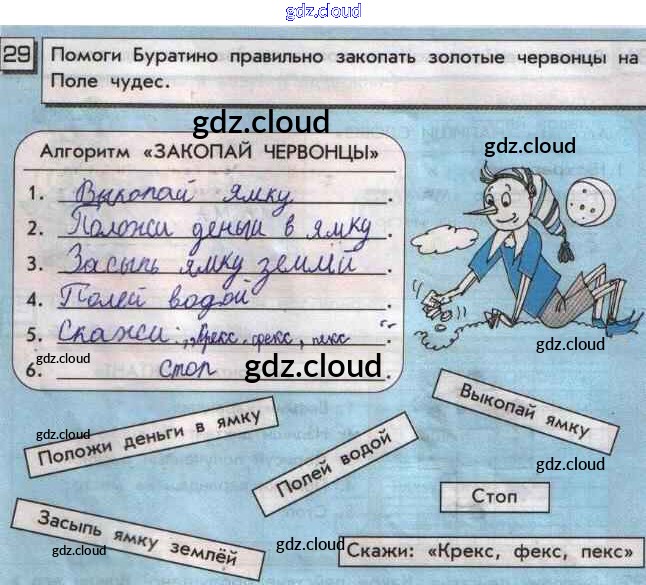 gdz.cloud
29 Помоги Буратино правильно закопать золотые червонцы на
Поле чудес.
gdz.cloud
gdz.cloud
Алгоритм «ЗАКОПАЙ ЧЕРВОНЦЫ»
1. Выкопай ямку.
2. Положи деньги в ямку.
3. Засыпь ямку землёй.
4. Полей водой.
5. Скажи: „Крекс, фекс, пекс“.
6. Стоп.
gdz.cloud
gdz.cloud
gdz.cloud
Выкопай ямку
Положи деньги в ямку
gdz.cloud
Полей водой
gdz.cloud
Стоп
Засыпь ямку землёй
gdz.cloud
gdz.cloud
Скажи: «Крекс, фекс, пекс»
gdz.cloud